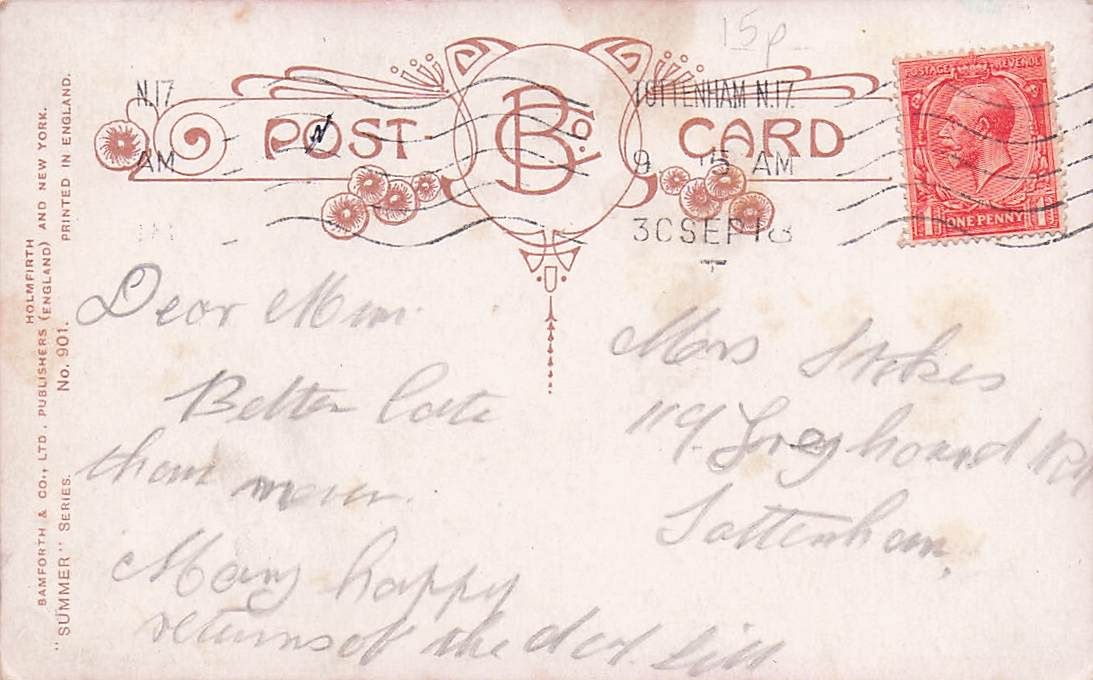 15p
N.17
AM
POST CARD
B Co. Ld
TOTTENHAM N.17.
9 15 AM
30 SEP 18
POSTAGE REVENUE
1 ONE PENNY 1
BAMFORTH & CO., LTD., PUBLISHERS HOLMFIRTH (ENGLAND) AND NEW YORK.
"SUMMER" SERIES. No. 901. PRINTED IN ENGLAND.
Dear Mum.
Better late
than never.
Many happy
returns of the day. Lill
Mrs Stokes
119. Greyhound Rd
Tottenham,